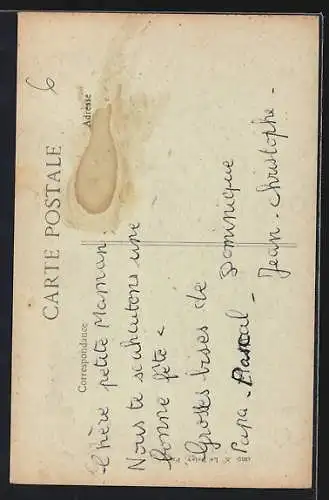 CARTE POSTALE
Correspondance
Adresse
6
Chère petite Maman.
Nous te souhaitons une
bonne fête -
Grosses bises de
Papa - Pascal - Dominique
Jean - Christophe -